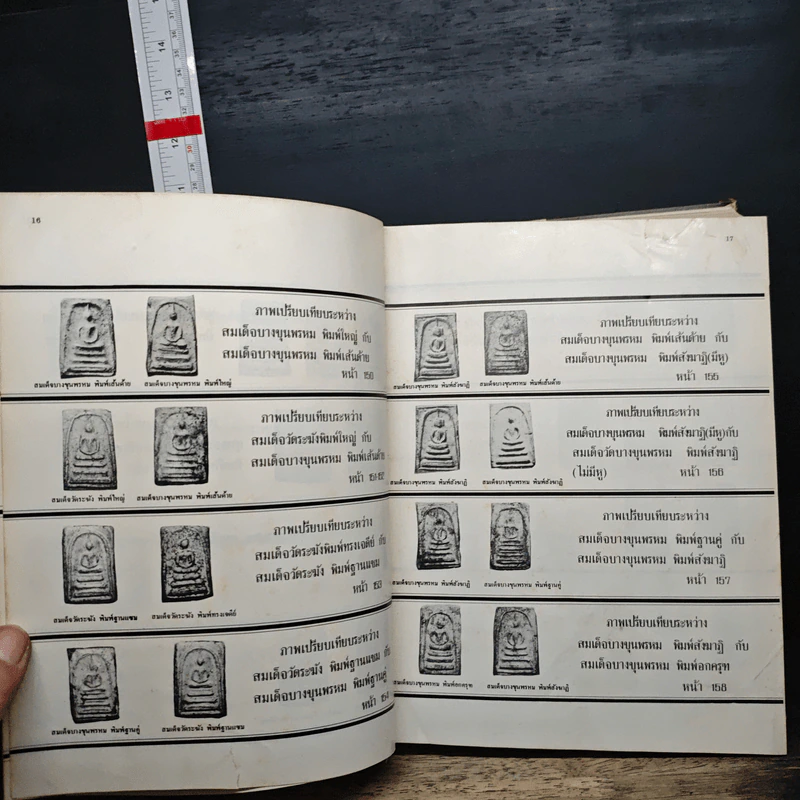 16
ภาพเปรียบเทียบระหว่าง
สมเด็จบางขุนพรหม พิมพ์ใหญ่ กับ
สมเด็จบางขุนพรหม พิมพ์เส้นด้าย
หน้า 150
สมเด็จบางขุนพรหม พิมพ์เส้นด้าย สมเด็จบางขุนพรหม พิมพ์ใหญ่
ภาพเปรียบเทียบระหว่าง
สมเด็จวัดระฆังพิมพ์ใหญ่ กับ
สมเด็จบางขุนพรหม พิมพ์เส้นด้าย
หน้า
สมเด็จวัดระฆัง พิมพ์ใหญ่ สมเด็จบางขุนพรหม พิมพ์เส้นด้าย
ภาพเปรียบเทียบระหว่าง
สมเด็จวัดระฆังพิมพ์ทรงเจดีย์ กับ
สมเด็จวัดระฆัง พิมพ์ฐานแซม
หน้า 153
สมเด็จวัดระฆัง พิมพ์ฐานแซม สมเด็จวัดระฆัง พิมพ์ทรงเจดีย์
ภาพเปรียบเทียบระหว่าง
สมเด็จวัดระฆัง พิมพ์ฐานแซม กับ
สมเด็จบางขุนพรหม พิมพ์ฐานคู่
หน้า 154
สมเด็จบางขุนพรหม พิมพ์ฐานคู่ สมเด็จวัดระฆัง พิมพ์ฐานแซม
17
ภาพเปรียบเทียบระหว่าง
สมเด็จบางขุนพรหม พิมพ์เส้นด้าย กับ
สมเด็จบางขุนพรหม พิมพ์สังฆาฏิ(มีหู)
หน้า 155
สมเด็จบางขุนพรหม พิมพ์สังฆาฏิ สมเด็จบางขุนพรหม พิมพ์เส้นด้าย
ภาพเปรียบเทียบระหว่าง
สมเด็จบางขุนพรหม พิมพ์สังฆาฏิ(มีหู)กับ
สมเด็จวัดบางขุนพรหม พิมพ์สังฆาฏิ
(ไม่มีหู) หน้า 156
สมเด็จบางขุนพรหม พิมพ์สังฆาฏิ สมเด็จบางขุนพรหม พิมพ์สังฆาฏิ
ภาพเปรียบเทียบระหว่าง
สมเด็จบางขุนพรหม พิมพ์ฐานคู่ กับ
สมเด็จบางขุนพรหม พิมพ์สังฆาฏิ
หน้า 157
สมเด็จบางขุนพรหม พิมพ์สังฆาฏิ สมเด็จบางขุนพรหม พิมพ์ฐานคู่
ภาพเปรียบเทียบระหว่าง
สมเด็จบางขุนพรหม พิมพ์สังฆาฏิ กับ
สมเด็จบางขุนพรหม พิมพ์อกครุฑ
หน้า 158
สมเด็จบางขุนพรหม พิมพ์อกครุฑ สมเด็จบางขุนพรหม พิมพ์สังฆาฏิ
14
13
12